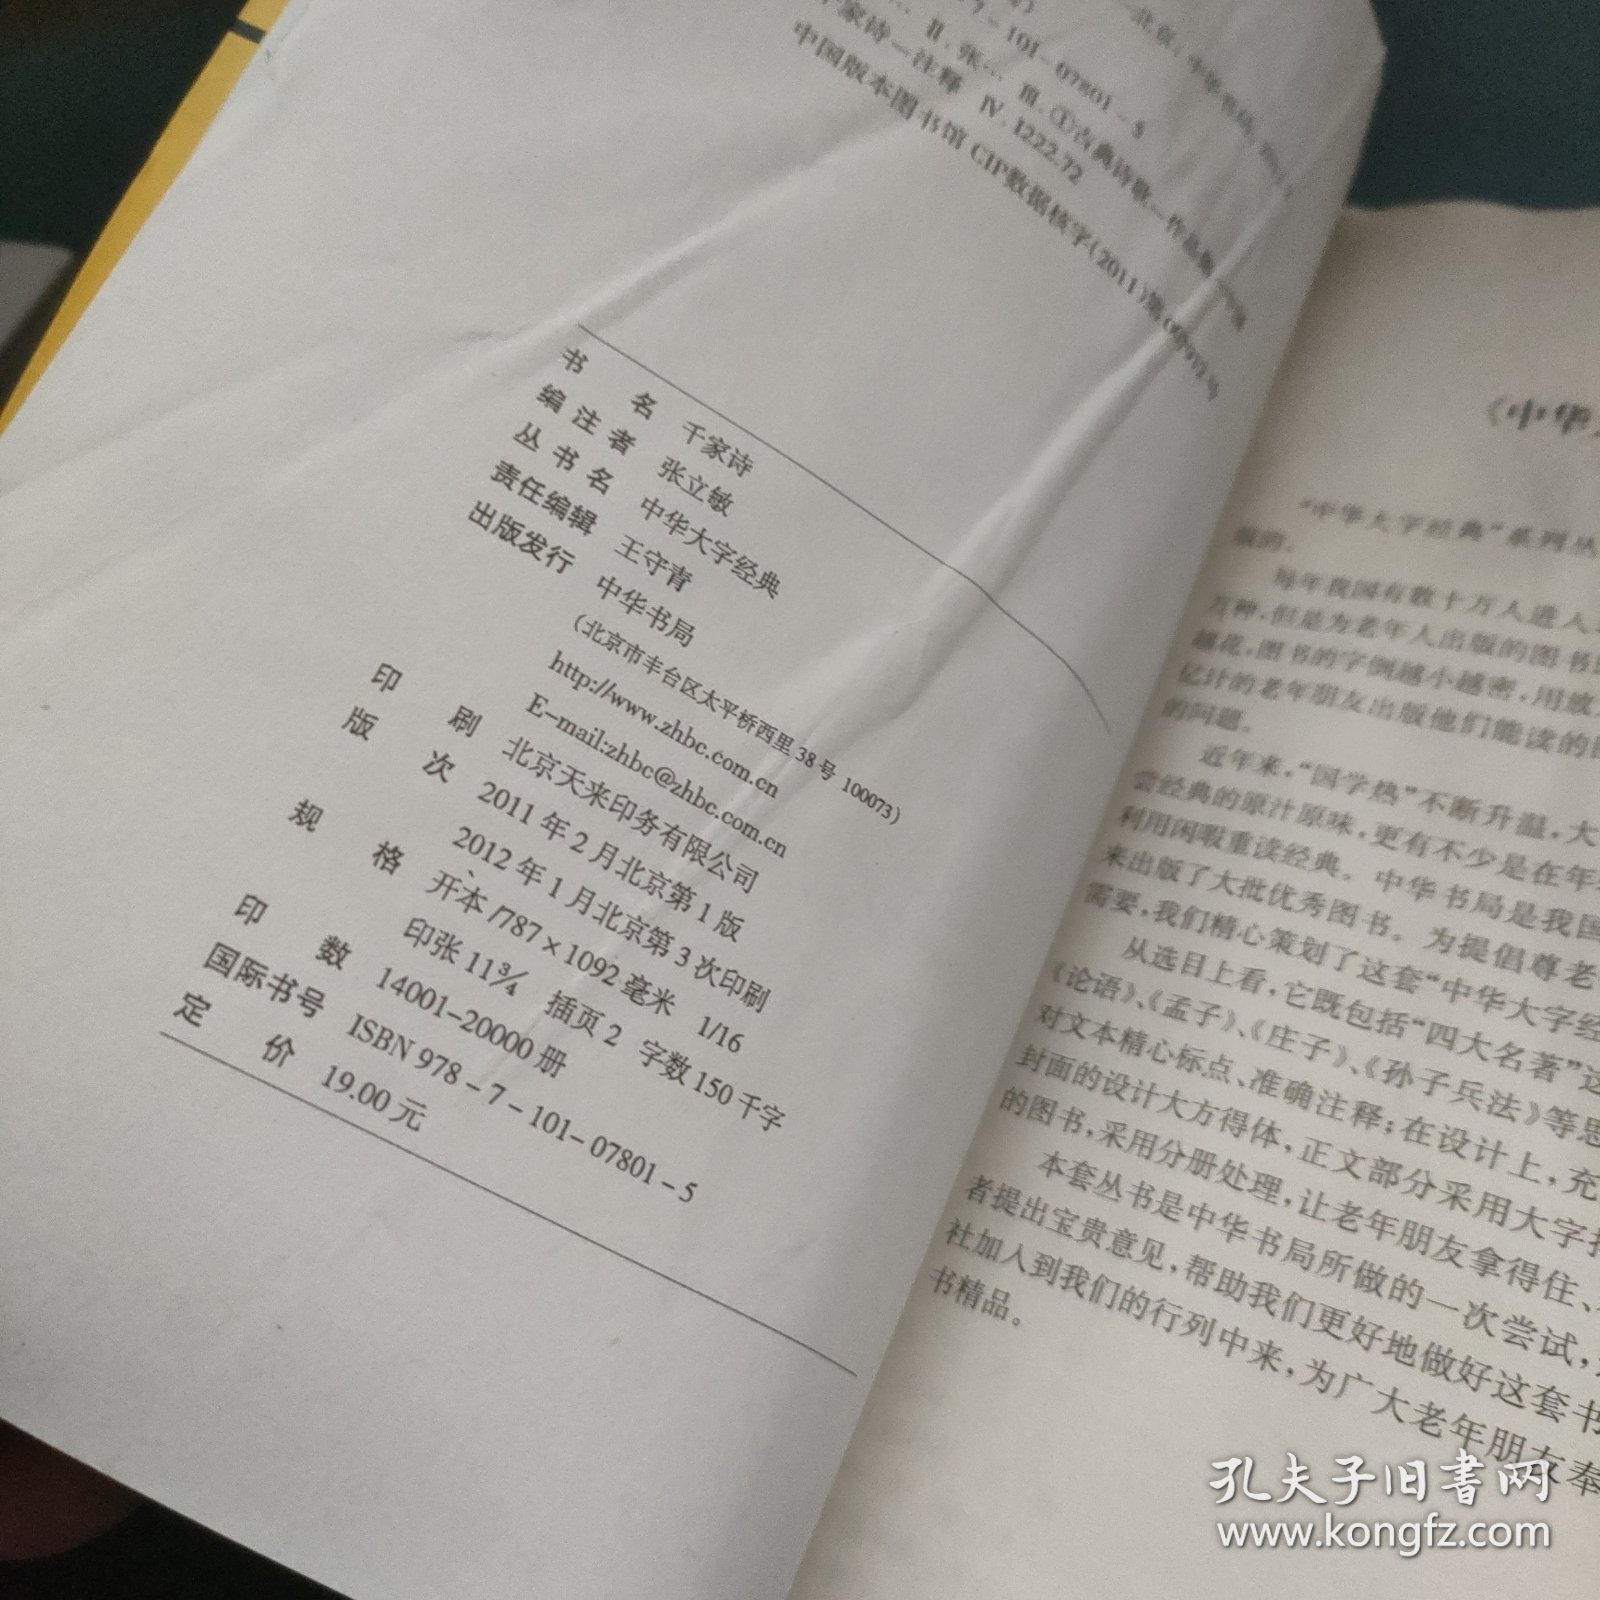 7-101-07801-5
Ⅱ.张… Ⅲ.①古典诗歌—作品集
家诗—注释 Ⅳ.I222.72
中国版本图书馆CIP数据核字(2011)第
书 名 千家诗
编注者 张立敏
丛书名 中华大字经典
责任编辑 王守青
出版发行 中华书局
(北京市丰台区太平桥西里38号 100073)
http://www.zhbc.com.cn
E-mail:zhbc@zhbc.com.cn
印 刷 北京天来印务有限公司
版 次 2011年2月北京第1版
2012年1月北京第3次印刷
规 格 开本/787×1092毫米 1/16
印张11¾ 插页2 字数150千字
印 数 14001-20000册
国际书号 ISBN 978-7-101-07801-5
定 价 19.00元
《中华
“中华大字经典”系列丛
版的。
每年我国有数十万人进入
万种,但是为老年人出版的图书
越花,图书的字倒越小越密,用放
亿计的老年朋友出版他们能读的
的问题。
近年来,“国学热”不断升温,大
尝经典的原汁原味,更有不少是在年
利用闲暇重读经典。中华书局是我国
来出版了大批优秀图书。为提倡尊老
需要,我们精心策划了这套“中华大字经
从选目上看,它既包括“四大名著”这
《论语》、《孟子》、《庄子》、《孙子兵法》等思
对文本精心标点、准确注释;在设计上,充
封面的设计大方得体,正文部分采用大字
的图书,采用分册处理,让老年朋友拿得住、
本套丛书是中华书局所做的一次尝试,
者提出宝贵意见,帮助我们更好地做好这套书
社加入到我们的行列中来,为广大老年朋友奉
书精品。
孔夫子旧书网
www.kongfz.com